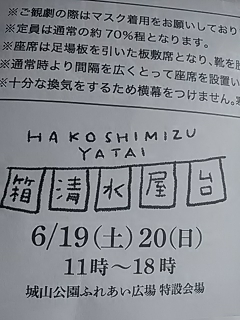 ※ご観劇の際はマスク着用をお願いしており
※定員は通常の約70%程となります。
※座席は足場板を引いた板敷席となり、靴を脱
※通常時より間隔を広くとって座席を設置い
※十分な換気をするため横幕をつけません。
HAKOSHIMIZU
YATAI
箱清水屋台
6/19(土)20(日)
11時〜18時
城山公園ふれあい広場 特設会場